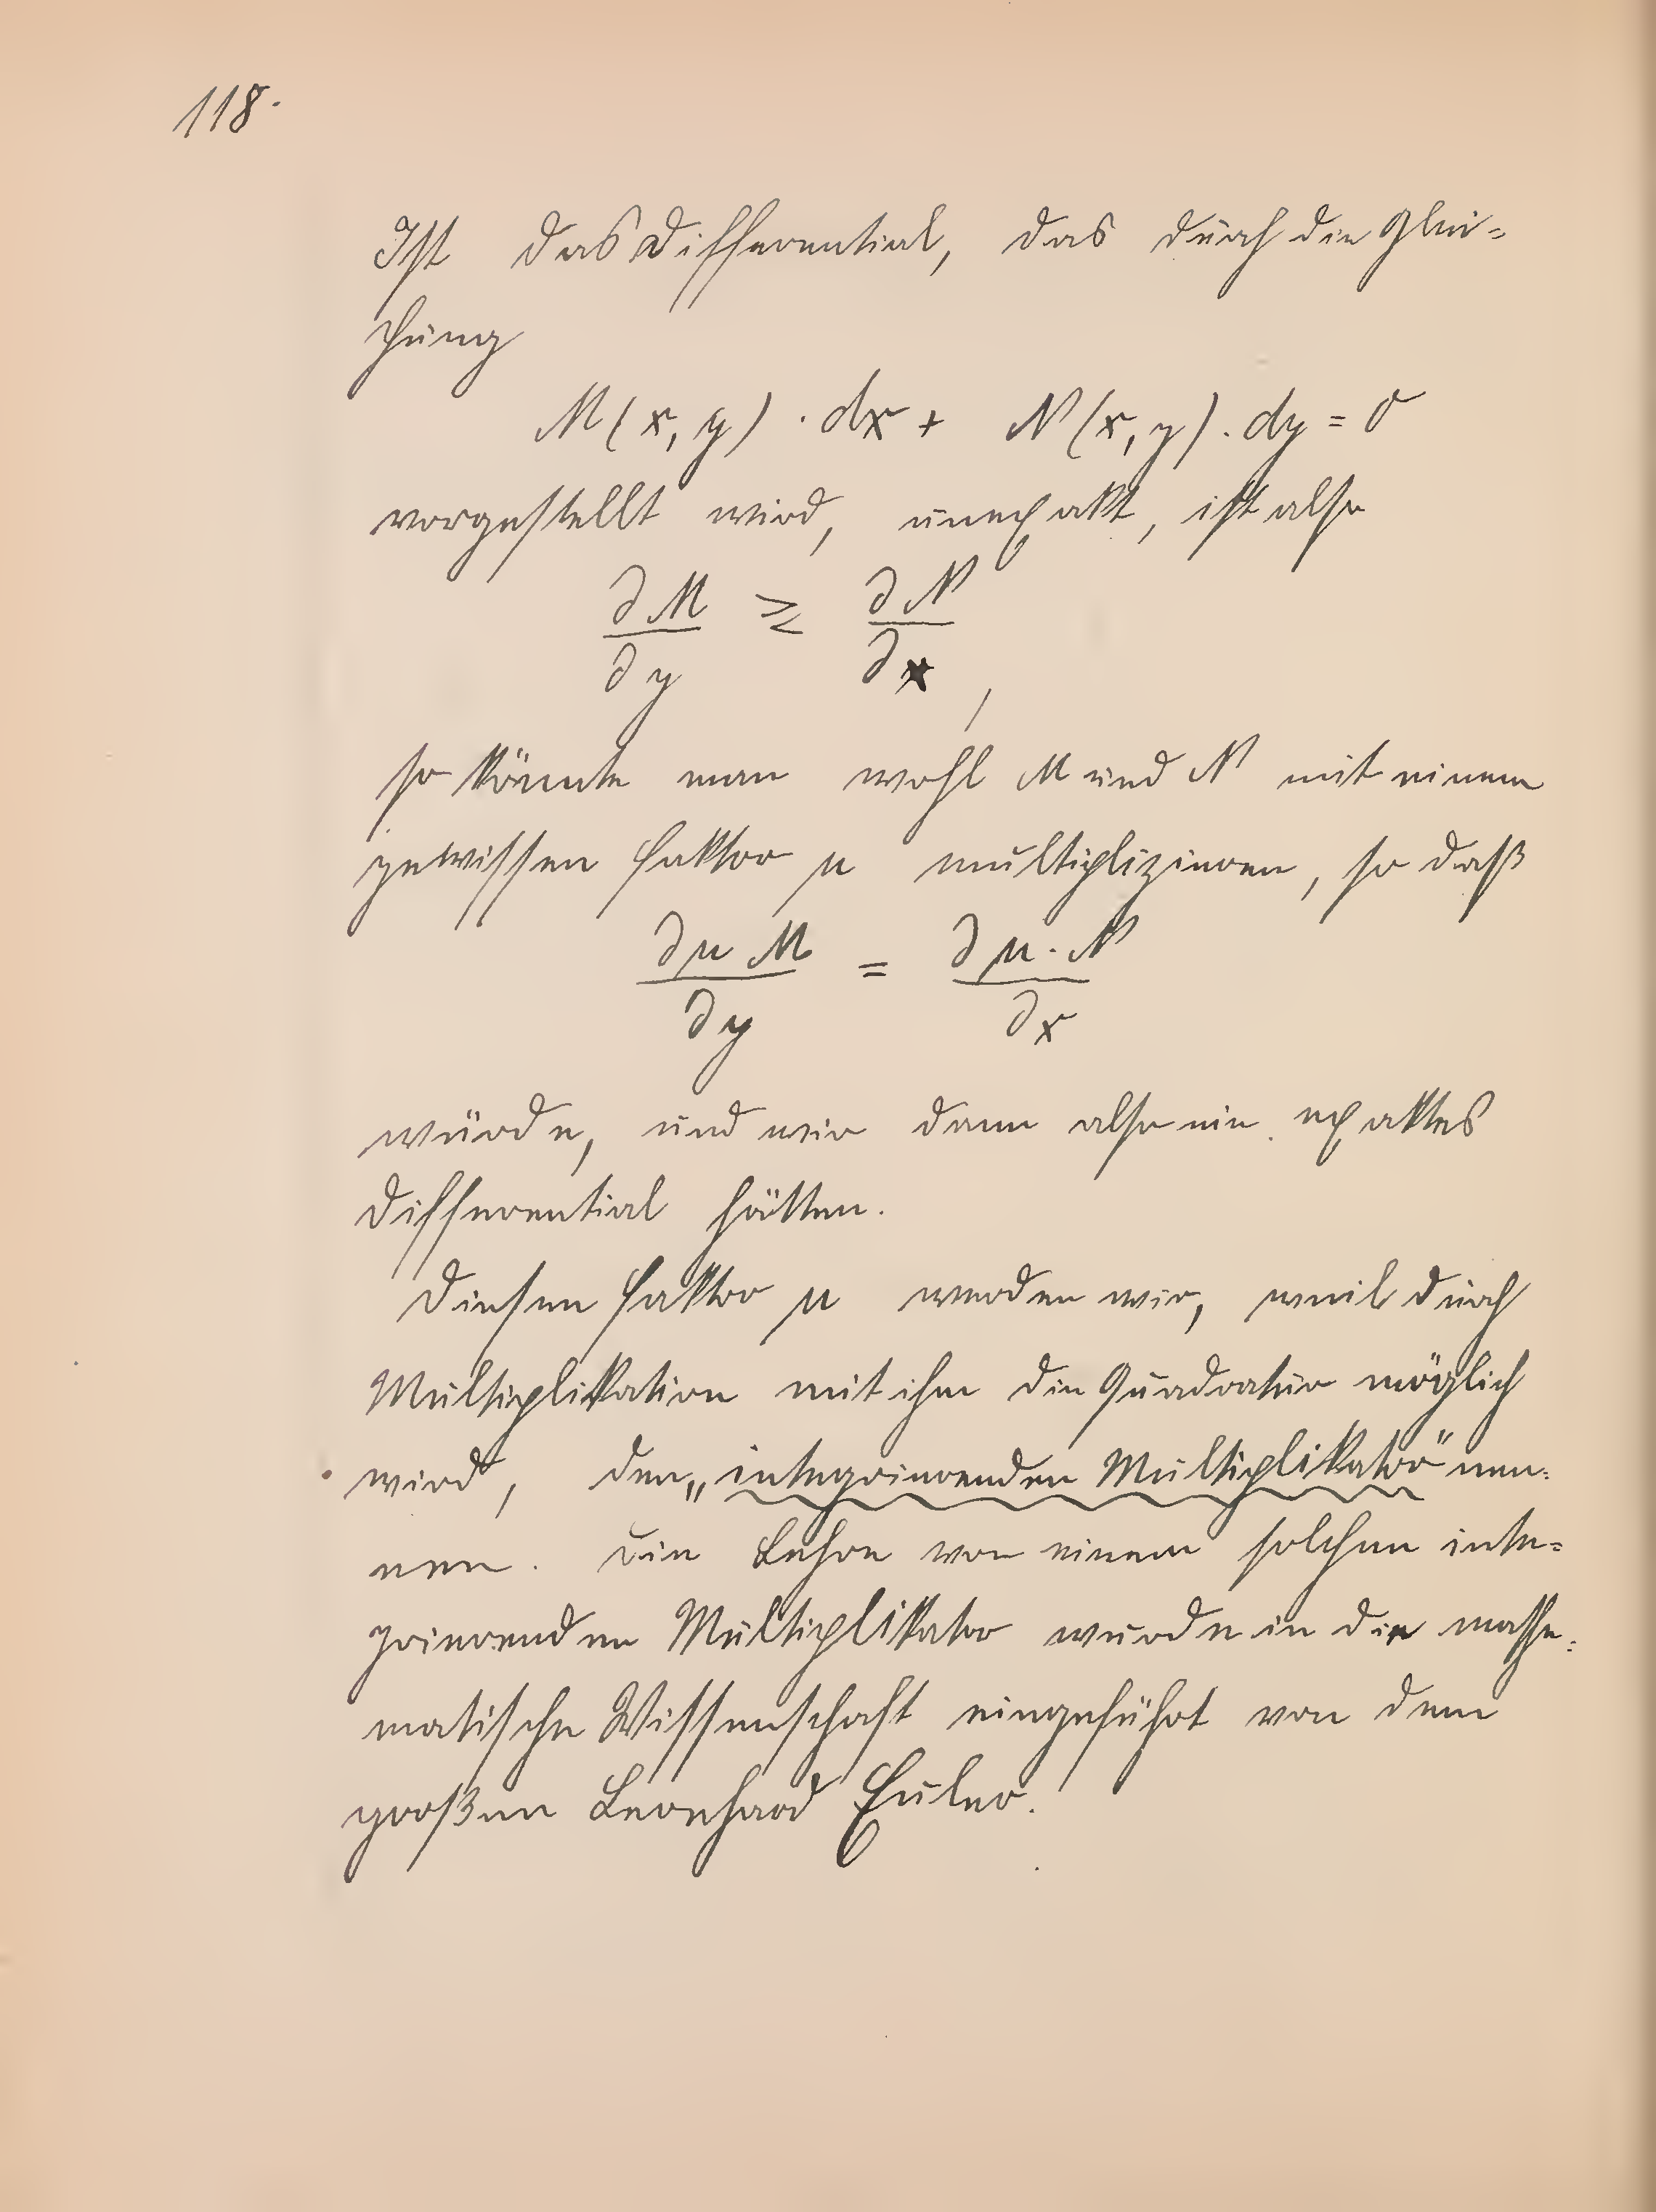 118.
Ist das Differential, das durch die Glei=
chung
M(x, y) · dx + N(x, y) · dy = 0
vorgestellt wird, unexakt, ist also
∂M/∂y ≷ ∂N/∂x,
so könnte man wohl M und N mit einem
gewissen Faktor μ multiplizieren, so daß
∂μM/∂y = ∂μ·N/∂x
würde, und wir dann also ein exaktes
Differential hätten.
Diesen Faktor μ werden wir, weil durch
Multiplikation mit ihm die Quadratur möglich
wird, den „integrierenden Multiplikator" nen=
nen. Die Lehre von einem solchen inte=
grierenden Multiplikator wurde in die mathe=
matische Wissenschaft eingeführt von dem
großen Leonhard Euler.